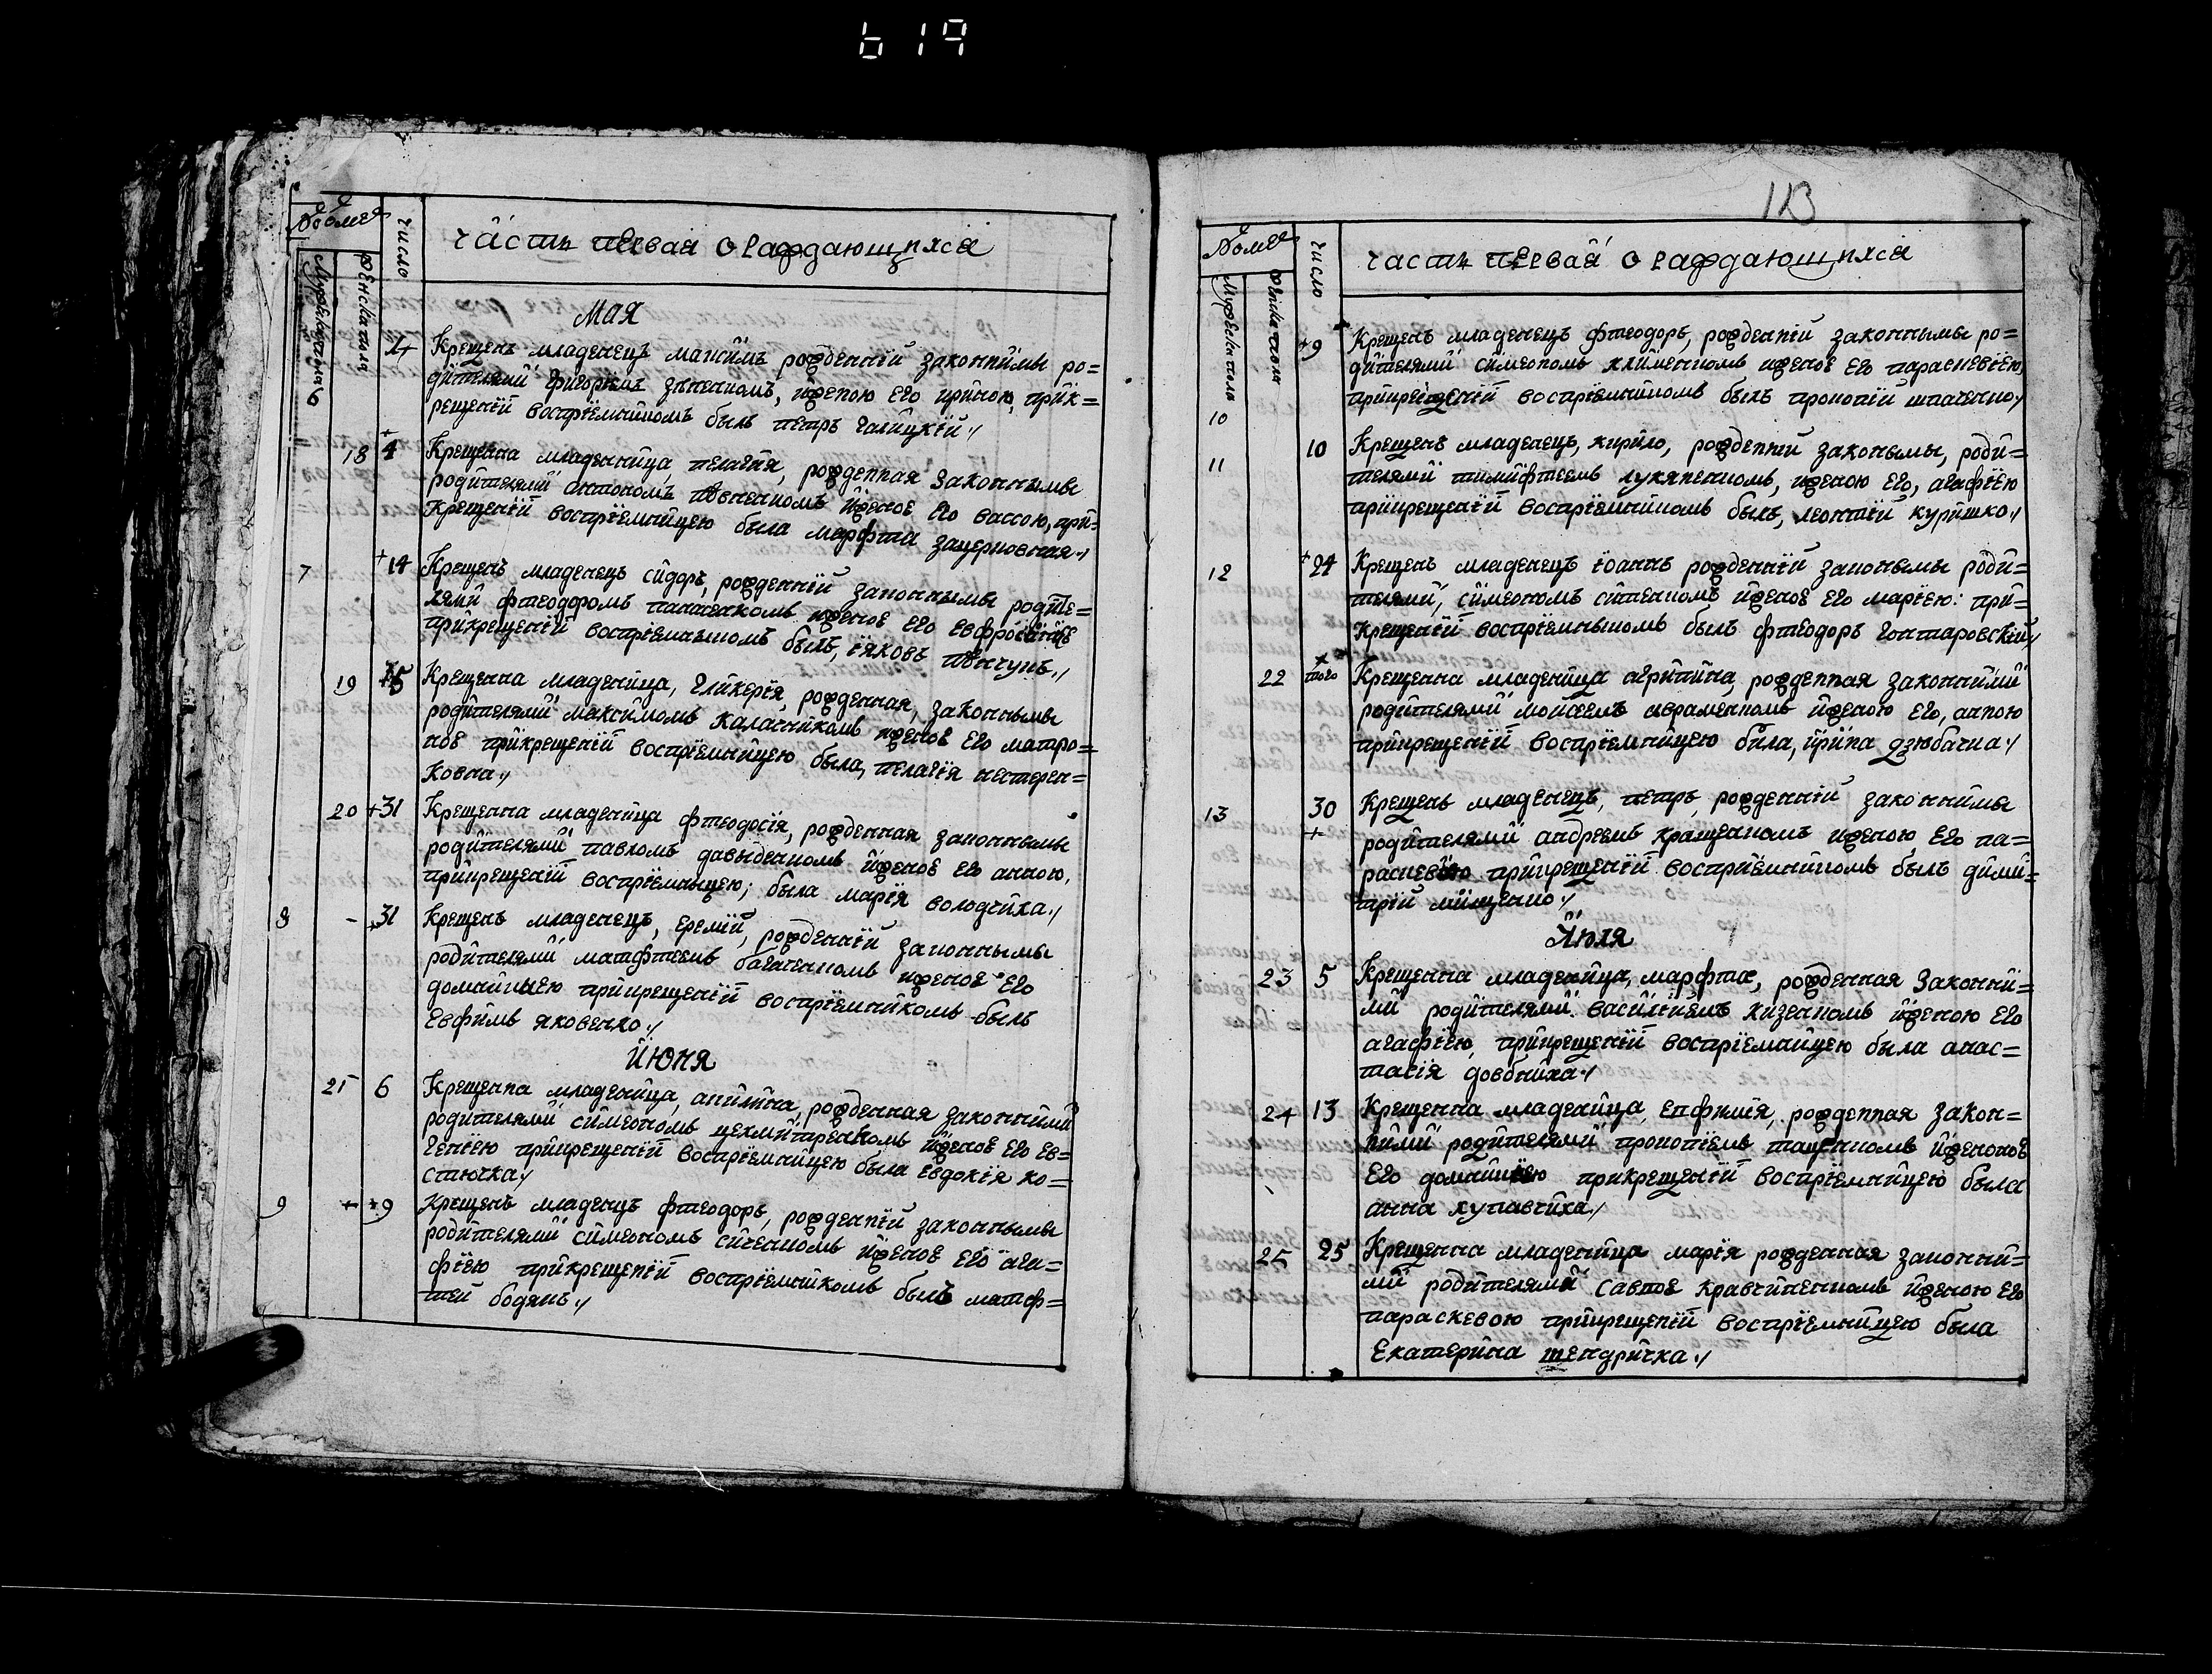 619
Номеръ
Мужеска пола
Женска пола
число
часть первая о раждающихся
Мая
6 4 Крещенъ младенецъ максимъ рожденній законнимы ро=
дителями григоріемъ зѣненкомъ, иженою его ириною, прик=
рещеніи воспріемникомъ былъ петръ галицкій ./
18 4 Крещенна младенница, пелагія, рожденная законнымы
родителями антономъ иженоє его вассою, при=
крещеніи воспріемницею была марфта зацерковная ./
7 14 Крещенъ младенецъ сидоръ, рожденній законнымы родите=
лями фтеодоромъ иженоє его евфросиніє
прикрещеніи воспріемныкомъ былъ, іяковъ ./
19 15 Крещенна младеница, гликерія, рожденная, законнымы
родителями максимомъ каланникомъ иженоє его матро=
ноє прикрещеніи воспріемницею была, пелагія нестерен=
ковна ./
20 31 Крещенна младеница фтеодосія, рожденная законнымы
родителями павломъ давыденкомъ иженоє его анною,
прикрещеніи воспріемныцею; была марія володчиха ./
8 - 31 Крещенъ младенецъ, еремій, рожденній законнымы
родителями матфтеемъ багаченкомъ иженоє его
домникиею прикрещеніи воспріемникомъ былъ
Евфимъ яковенко ./
Июня
21 6 Крещенна младеница, акилина, рожденная законними
родителями симеономъ цехмитренкомъ иженоє его ев=
геніею прикрещеніи воспріемницею была евдокія ко=
стючка ./
9 9 Крещенъ младенцъ фтеодоръ, рожденній законнымы
родителями симеономъ сиченкомъ иженоє его ага=
фіею прикрещеніи воспріемникомъ былъ матф=
тей бодянъ ./
113
Номеръ
Мужеска пола
Женска пола
число
часть первая о раждающихся
10 9 Крещенъ младенецъ фтеодоръ, рожденній законнымы ро=
дителями симеономъ клименкомъ иженоє его параскевіею,
прикрещеніи воспріемникомъ былъ прокопій шпаченко ./
11 10 Крещенъ младенецъ, кирило, рожденній законымы, роди=
телями тимифтеемъ лукяненкомъ, иженою его, агафіею
прикрещеніи воспріемникомъ былъ, леонтій куришко ./
12 24 Крещенъ младенецъ іоаннъ рожденній законымы роди=
телями, симеономъ ситенкомъ иженоє его маріею: при=
крещеніи воспріемныкомъ былъ фтеодоръ гонтаровскій ./
22 того Крещенна младеница агрипина, рожденная законними
родителями моисеемъ авраменкомъ иженою его, анною
прикрещеніи воспріемницею била, ирина дзюбачка ./
13 30 Крещенъ младенецъ, петръ, рожденній законнимы
родителями андреемъ кращенкомъ иженою его па=
раскевіею прикрещеніи воспріемникомъ былъ дими=
трій мищенко ./
Июля
23 5 Крещенна младеница, марфта, рожденная законни=
ми родителями василиемъ кизенкомъ иженою его
агафіею прикрещеніи воспріемницею была анас=
тасія довбниха ./
24 13 Крещенна младеница, епфимія, рожденная закон=
ними родителями прокопіемъ таценкомъ иженоноє
его домникіею прикрещеніи воспріемницею была
анна хупавчиха ./
25 25 Крещенна младеница марія рожденная законни=
ми родителями савтоє кравчиненкомъ иженою его
параскевою прикрещеніи воспріемницею была
Екатерина тендричка ./